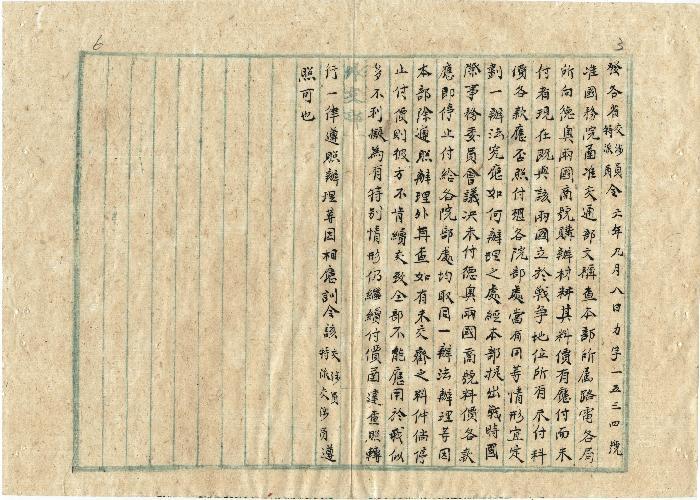 6
3
發各省交涉員特派員令 六年九月八日 力字一五三四號
准國務院函准交通部文稱查本部所屬路電各局
所向德奧兩國商號購辦材料其料價有應付而未
付者現在既與該兩國立於戰爭地位所有未付料
價各款應否照付想各院部處當有同等情形宜定
劃一辦法究應如何辦理之處經本部提出戰時國
際事務委員會議決未付德奧兩國商號料價各款
應即停止付給各院部處均取同一辦法辦理等因
本部除遵照辦理外再查如有未交齊之料件倘停
止付價則彼方不肯續交致全部不能應用於我似
多不利擬為有特別情形仍繼續付價函達查照轉
行一律遵照辦理等因相應訓令該交涉員特派交涉員遵
照可也